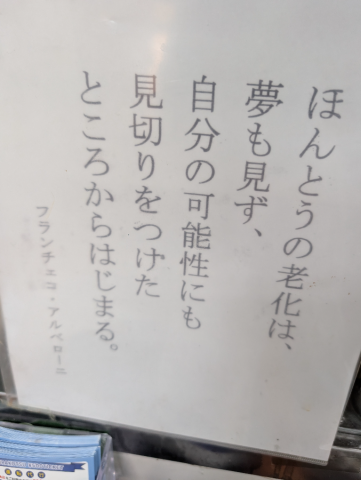 ほんとうの老化は、
夢も見ず、
自分の可能性にも
見切りをつけた
ところからはじまる。
フランチェコ・アルベローニ